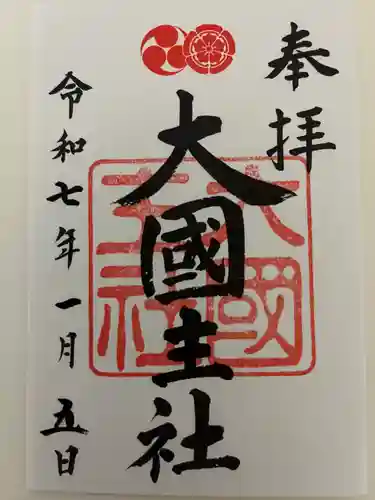 奉拝
大國主社
大國主社
令和七年一月五日